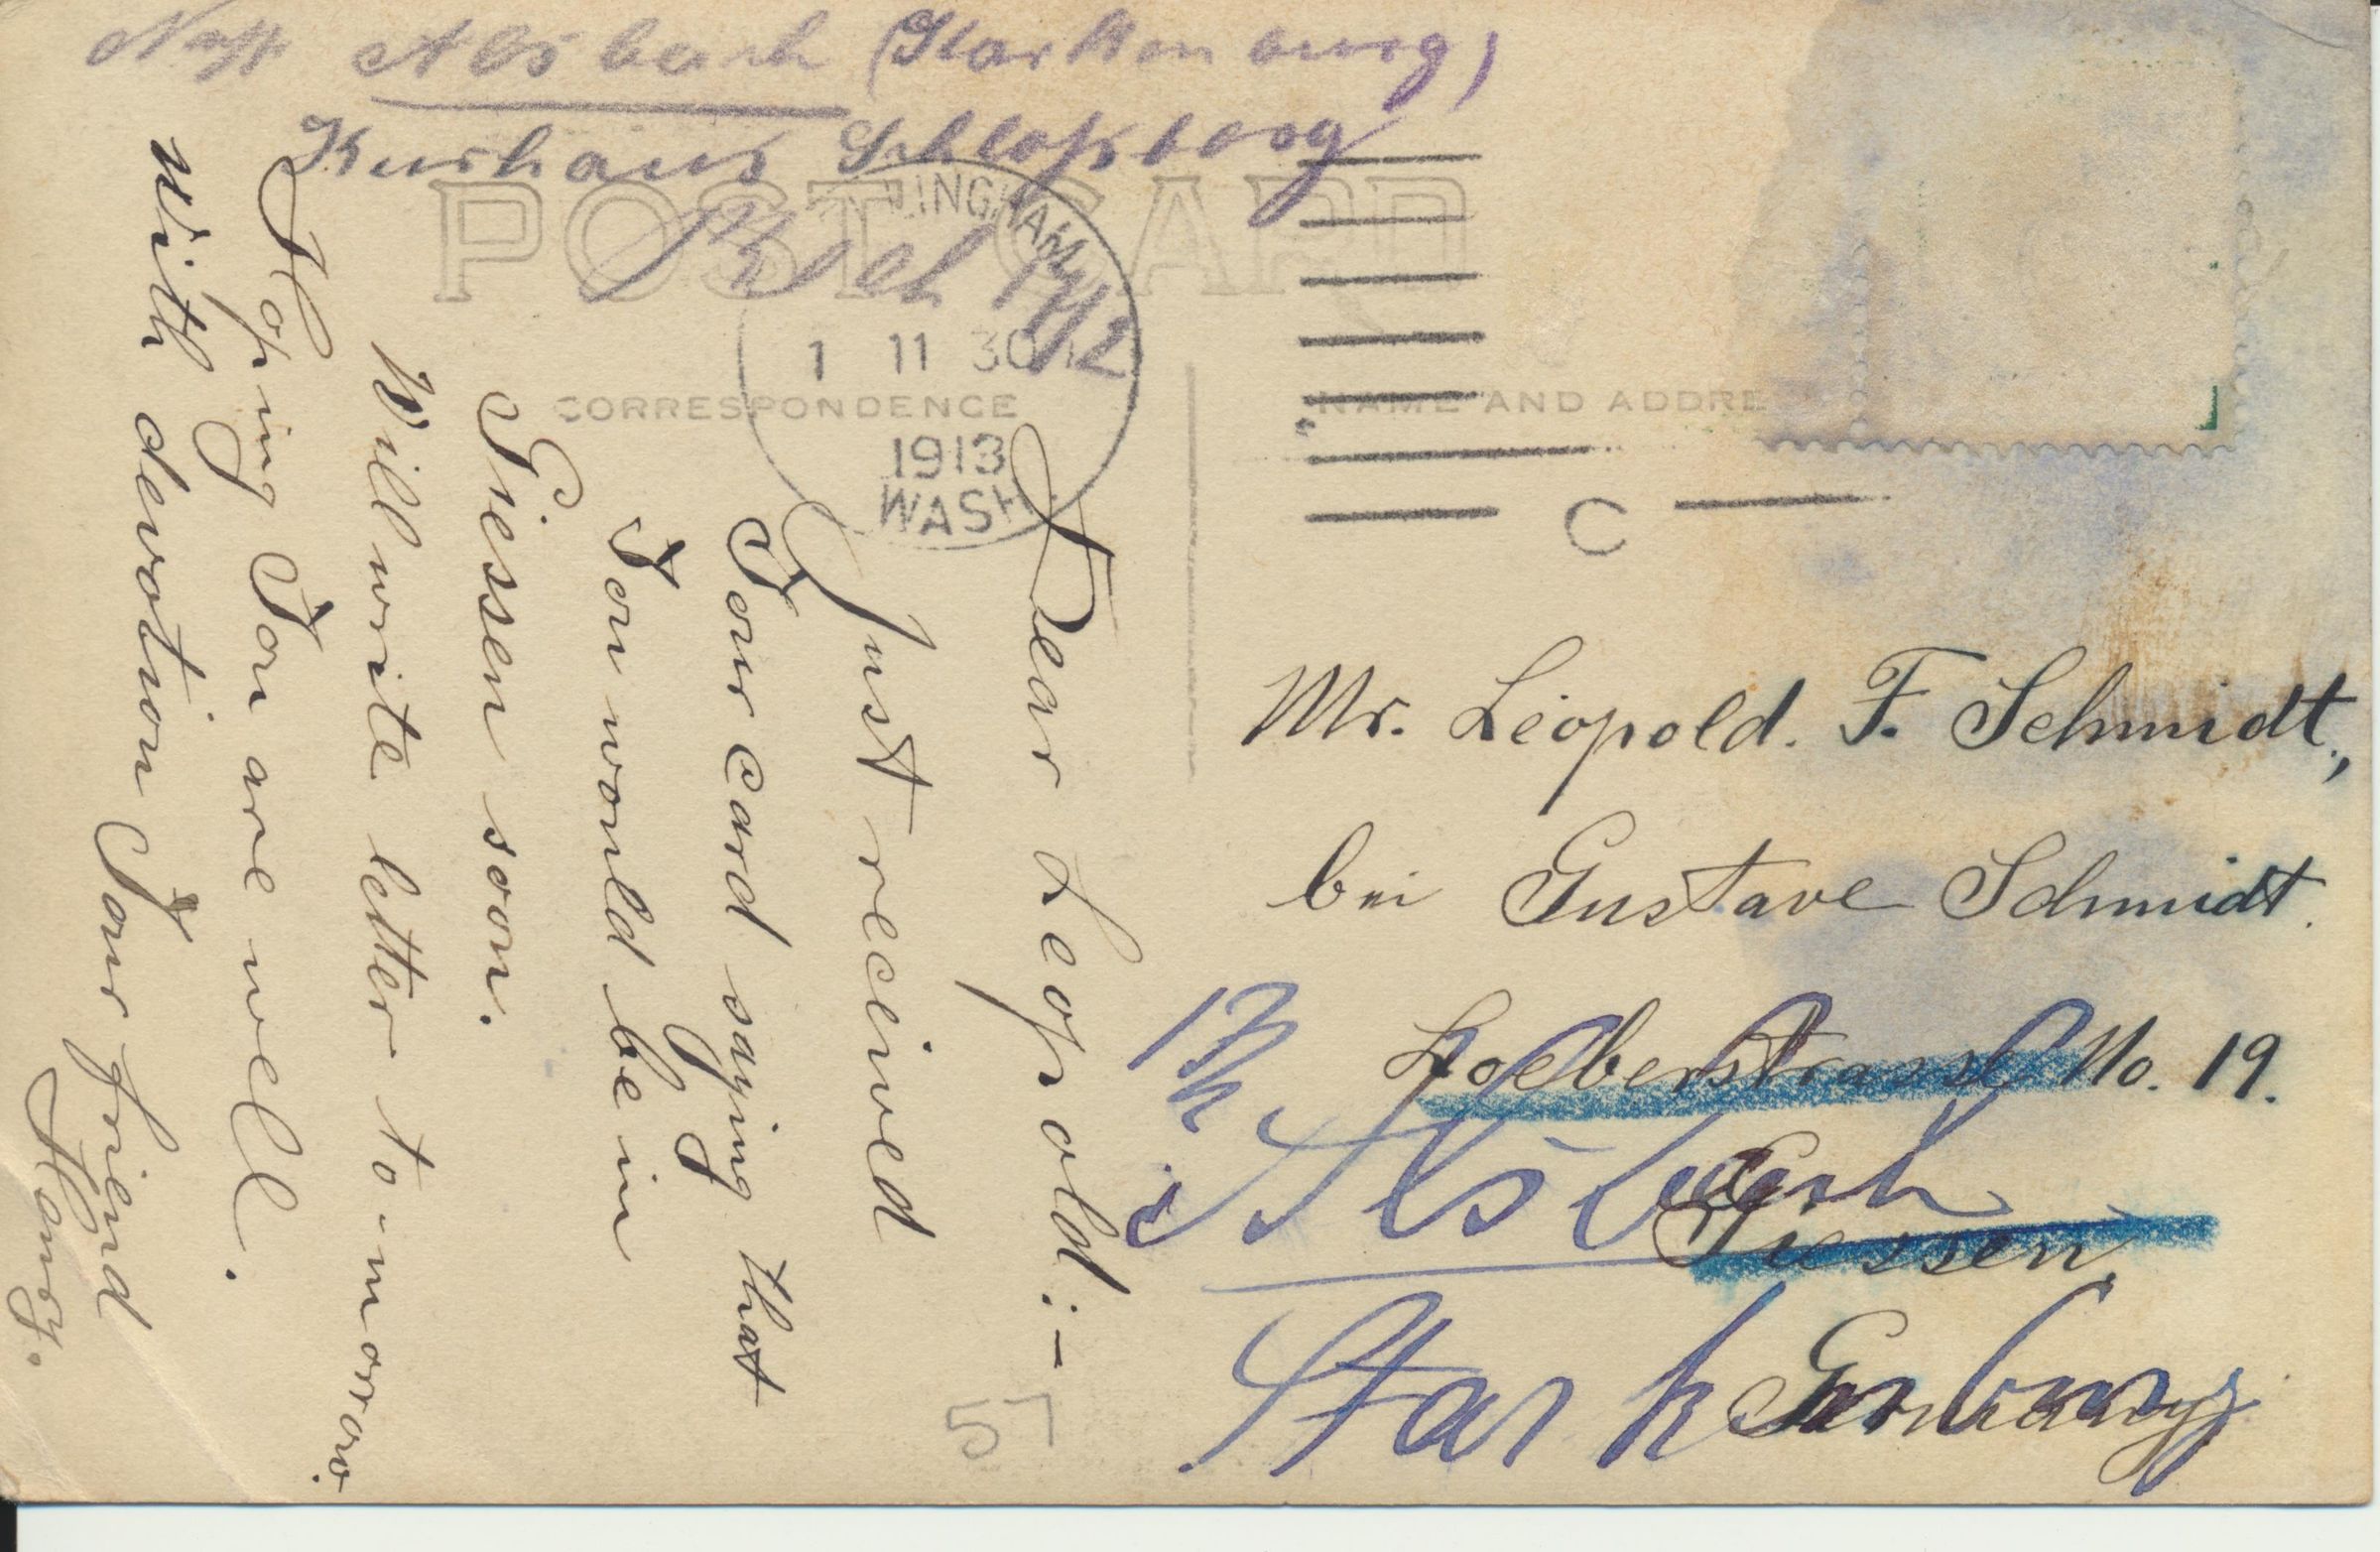 Alsbach (Starkenburg)
Kurhaus Schloßberg
POST CARD
LINGHAM
1 11 30
1913
WASH
CORRESPONDENCE
NAME AND ADDRE
C
Dear Leopold:-
Just received
Your card saying that
You would be in
Giessen soon.
Will write letter to-morrow.
Hoping You are well.
With devotion Your friend
Mr. Leopold. F. Schmidt,
bei Gustave Schmidt.
Loeberstrasse No. 19.
Giessen,
Germany
Alsbach
Starkenburg
57